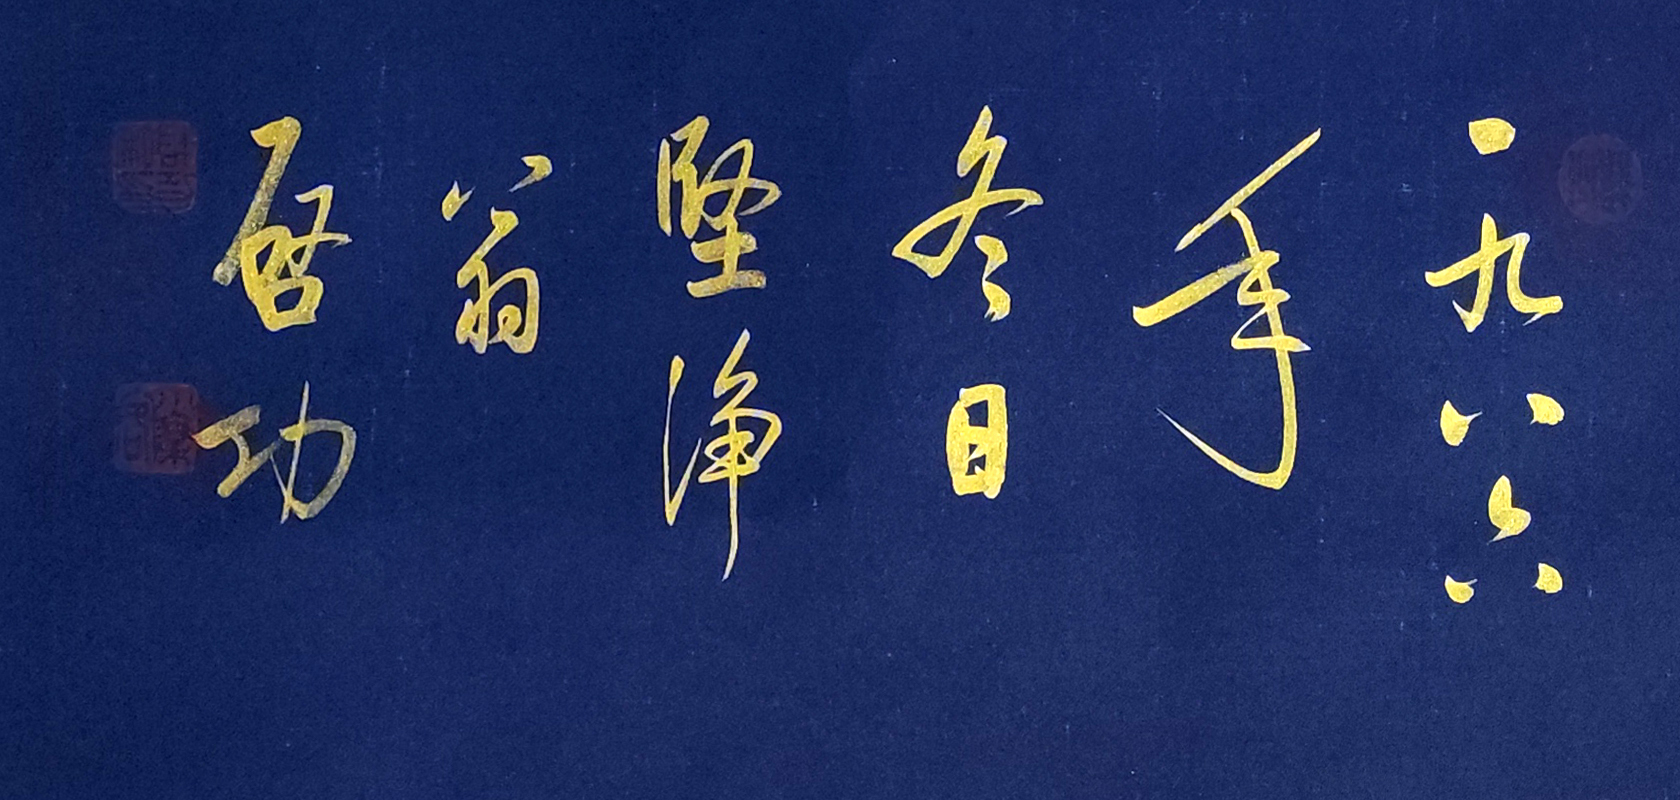 一九八六
年
冬日
堅净
翁
启功